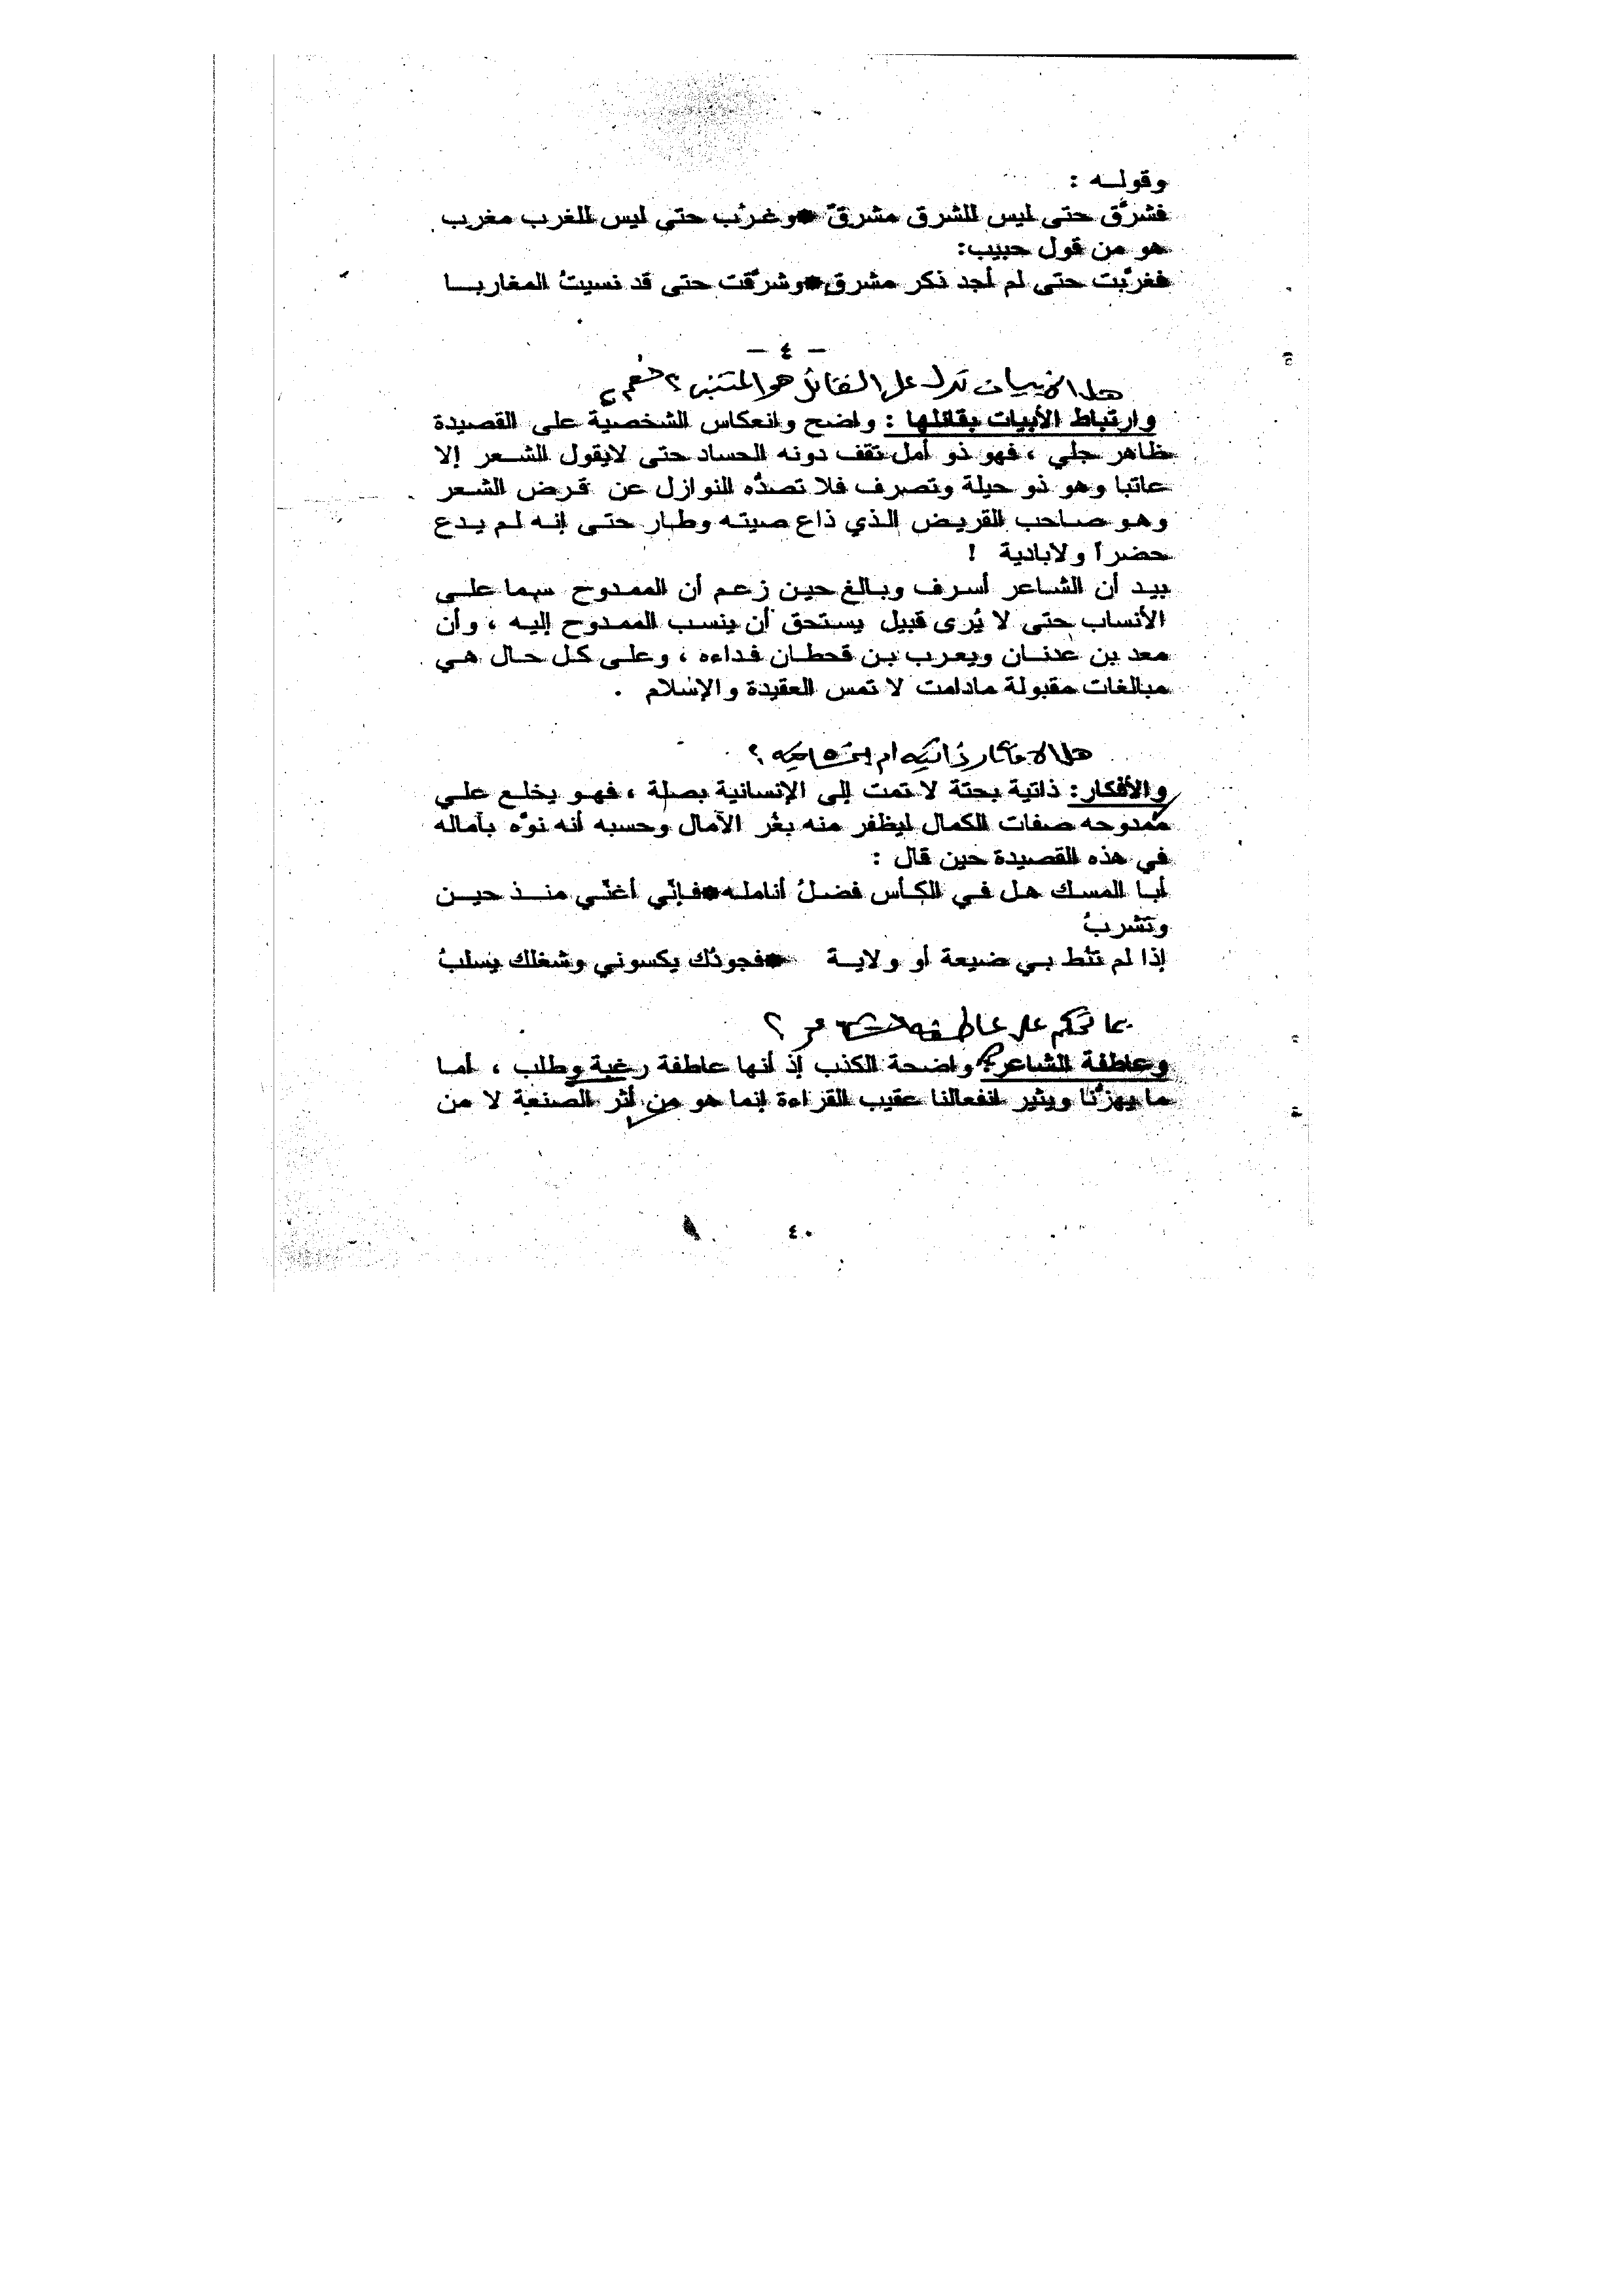 وقولـــه :
فشرَّق حتى ليس للشرق مشرقٌ * وغرَّب حتى ليس للغرب مغرب
هو من قول حبيب:
فغرَّبت حتى لم أجد ذكر مشرق * وشرَّقت حتى قد نسيتُ المغاربـــا
– ٤ –
هل الأبيات تدل على القائل هو المتنبي ؟ نعم
وارتباط الأبيات بقائلها : واضح وانعكاس الشخصية على القصيدة
ظاهر جلي ، فهو ذو أمل تقف دونه الحساد حتى لايقول الشــعر إلا
عاتبا وهو ذو حيلة وتصرف فلا تصدُّه النوازل عن قرض الشـعر
وهـو صـاحب القريـض الـذي ذاع صيتـه وطـار حتـى إنـه لـم يـدع
حضراً ولابادية !
بيـد أن الشـاعر أسـرف وبـالغ حيـن زعـم أن الممـدوح سـما علـى
الأنساب حتى لا يُرى قبيل يستحق أن ينسـب الممـدوح إليـه ، وأن
معـد بن عدنــان ويعـرب بـن قحطـان فـداءه ، وعلـى كـل حـال هـي
مبالغات مقبولة مادامت لا تمس العقيدة والإسلام .
هل الأفكار ذاتية أم اجتماعية ؟
والأفكار: ذاتية بحتة لا تمت إلى الإنسانية بصلة ، فهـو يخلـع علـي
ممدوحه صفات الكمال ليظفر منه بغُر الآمال وحسبه أنه نوَّه بآماله
في هذه القصيدة حين قال :
أبـا المسـك هـل فـي الكـأس فضـلُ أناملـه * فـإنّي أغنّـي منــذ حيــن
وتشربُ
إذا لم تنُط بـي ضيعة أو ولايــة * فجودُك يكسوني وشغلك يسلبُ
بما تحكم على عاطفة الشاعر ؟
وعاطفة الشاعر: واضحة الكذب إذ أنها عاطفة رغبة وطلب ، أمـا
ما يهزّنا ويثير انفعالنا عقيب القراءة إنما هو من أثر الصنعة لا من
٤٠